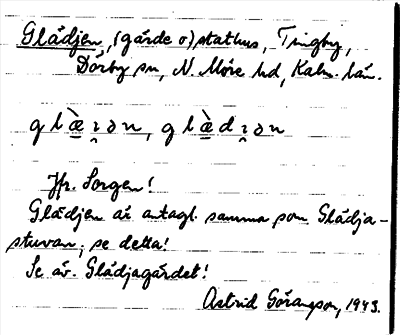 Glädjen, (gärde o) stathus, Tingby,
Dörby sn, N. Möre hd, Kalm. län.
g l æ̀ ɪ ə n, g l æ̀ d ɪ ə n
Jfr. Sorgen!
Glädjen är antagl. samma som Glädja-
stuvan; se detta!
Se äv. Glädjagärdet!
Astrid Göransson, 1943.